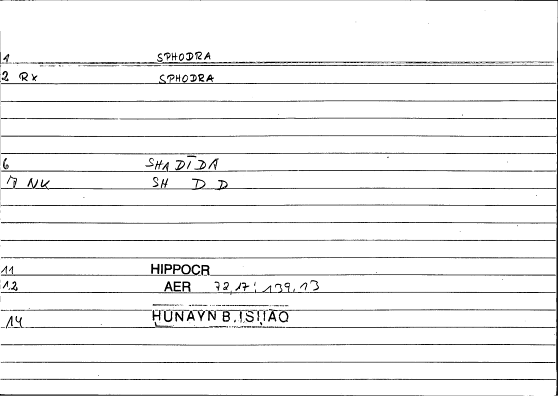 1 SPHODRA
2 Rx SPHODRA
6 SHADĪDA
7 NK SH D D
11 HIPPOCR
12 AER 72,17; 139,13
14 ḤUNAYN B.ISḤĀQ